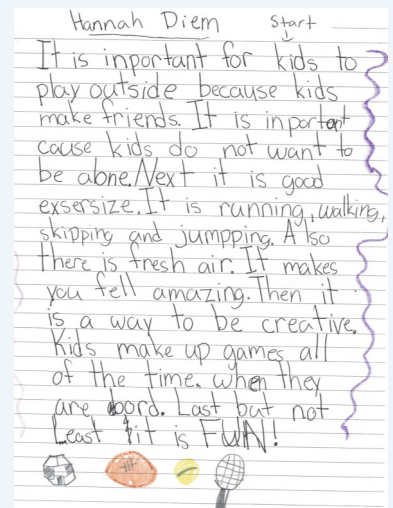 Hannah Diem Start
It is inportant for kids to
play outside because kids
make friends. It is inportant
cause kids do not want to
be alone. Next it is good
exsersize. It is running, walking,
skipping and jumpping. Also
there is fresh air. It makes
you fell amazing. Then it
is a way to be creative.
Kids make up games all
of the time. when they
are bord. Last but not
Least it is FUN!